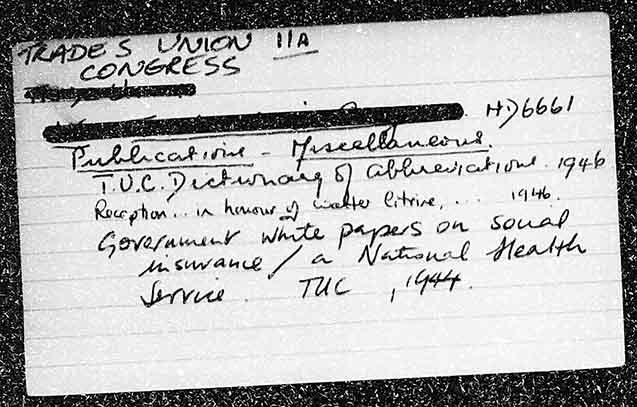 TRADES UNION 11A
CONGRESS
HD6661
Publications - Miscellaneous.
T.U.C. Dictionary of abbreviations. 1946
Reception... in honour of Walter Citrine, ... 1946.
Government white papers on social
insurance / a National Health
Service. TUC, 1944.